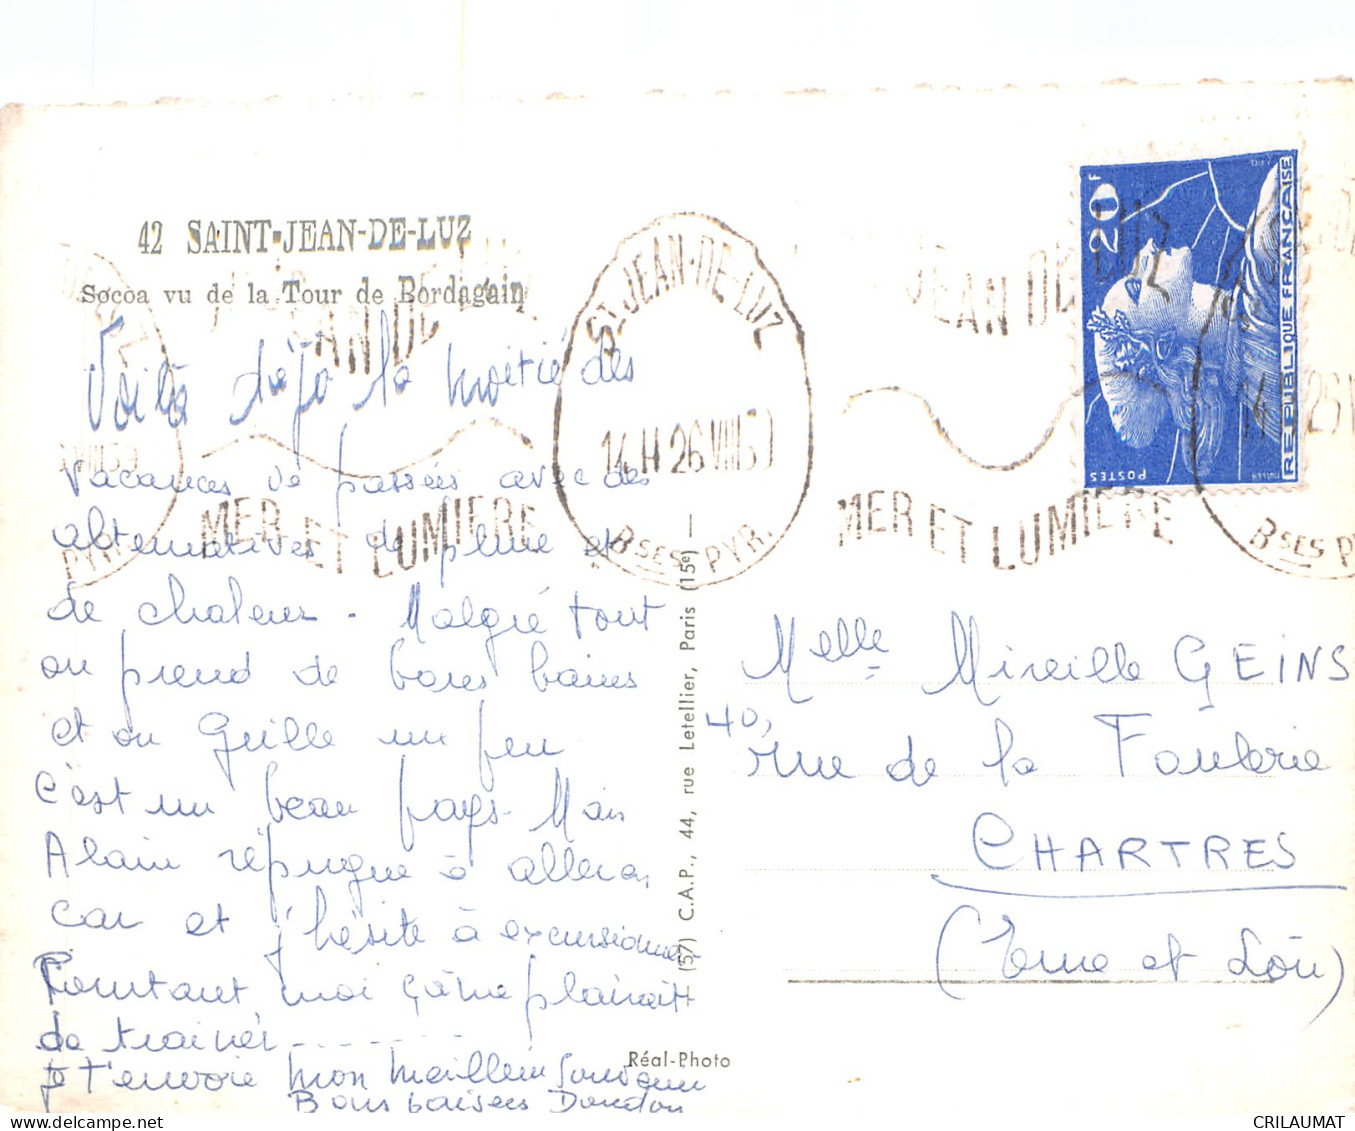 42 SAINT-JEAN-DE-LUZ
Socoa vu de la Tour de Bordagain
Voilà déjà la moitié des
vacances de passées avec des
alternatives de pluie et
de chaleur. Malgré tout
on prend de bons bains
et on grille un peu
c'est un beau pays. Mais
Alain répugne à aller en
car et j'hésite à excursionner
Pourtant moi ça me plairait
de trainer -------
Je t'envoie mon meilleur souvenir
Bons baisers Doudou
ST JEAN-DE-LUZ
14 H 26 VIII 59
BSES PYR.
ST JEAN DE LUZ
MER ET LUMIERE
JEAN DE LUZ
MER ET LUMIERE
BSES PY
(57) C.A.P., 44, rue Letellier, Paris (15e) —
Réal-Photo
20 F
POSTES
MULLER
REPUBLIQUE FRANÇAISE
Melle Mireille GEINS
40, rue de la Foulerie
CHARTRES
(Eure et Loir)
CRILAUMAT